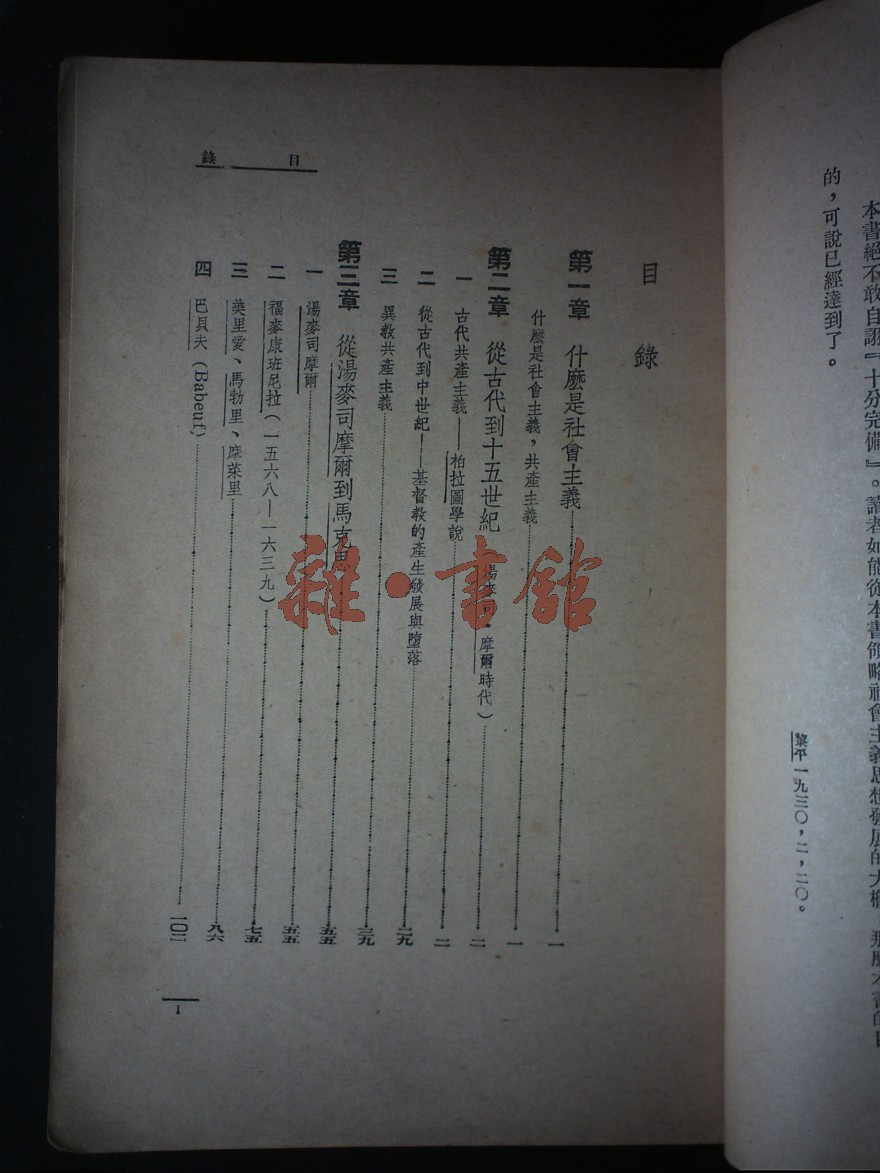 本書絕不敢自詡『十分完備』。讀者如能從本書領略社會主義思想發展的大概
的，可說已經達到了。
黎平一九三〇，二，二〇。
目錄
目錄
第一章 什麼是社會主義 一
什麼是社會主義，共產主義 一
第二章 從古代到十五世紀（湯麥司・摩爾時代） 二
一 古代共產主義——柏拉圖學說 二
二 從古代到中世紀——基督教的產生發展與墮落 二九
三 異教共產主義 三九
第三章 從湯麥司摩爾到馬克思 五五
一 湯麥司摩爾 五五
二 福麥康班尼拉（一五六八—一六三九） 七五
三 美里愛、馬勃里、摩萊里 八六
四 巴貝夫（Babeuf） 一〇二
1
雜・書館